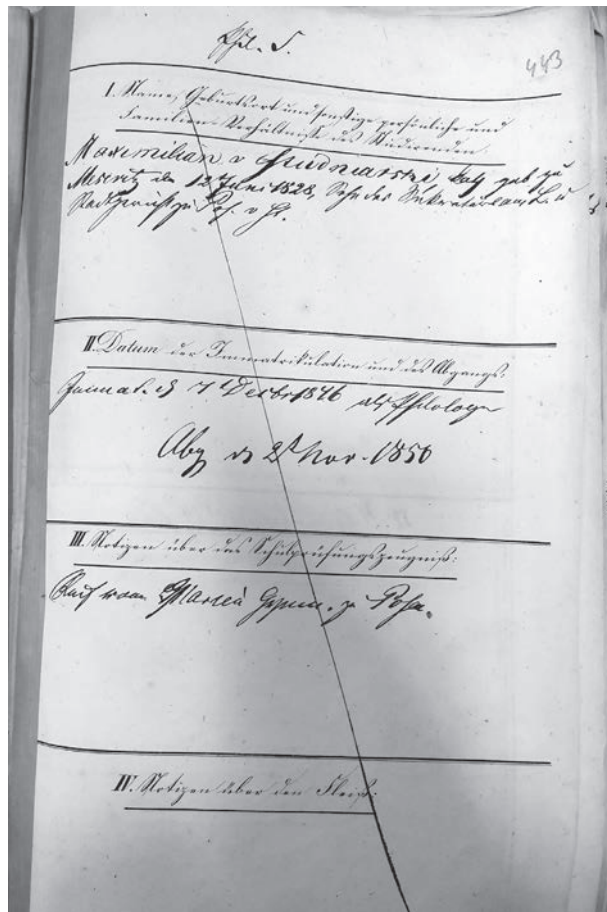 Phil. S.
443
I. Name, Geburtsort und sonstige persönliche und
Familien-Verhältnisse des Studirenden.
Maximilian v Studniarski kath geb zu
Meseritz den 12 Juni 1828, Sohn des Sekretärs am L. u
Stadtgericht zu
II. Datum der Immatrikulation und des Abgangs:
Immat. d 7t Decbr 1846 als Philologe
Abg d 2t Nov. 1850
III. Notizen über das Schulprüfungszeugniß:
Reif vom Marien Gymn. zu Posen.
IV. Notizen über den Fleiß: